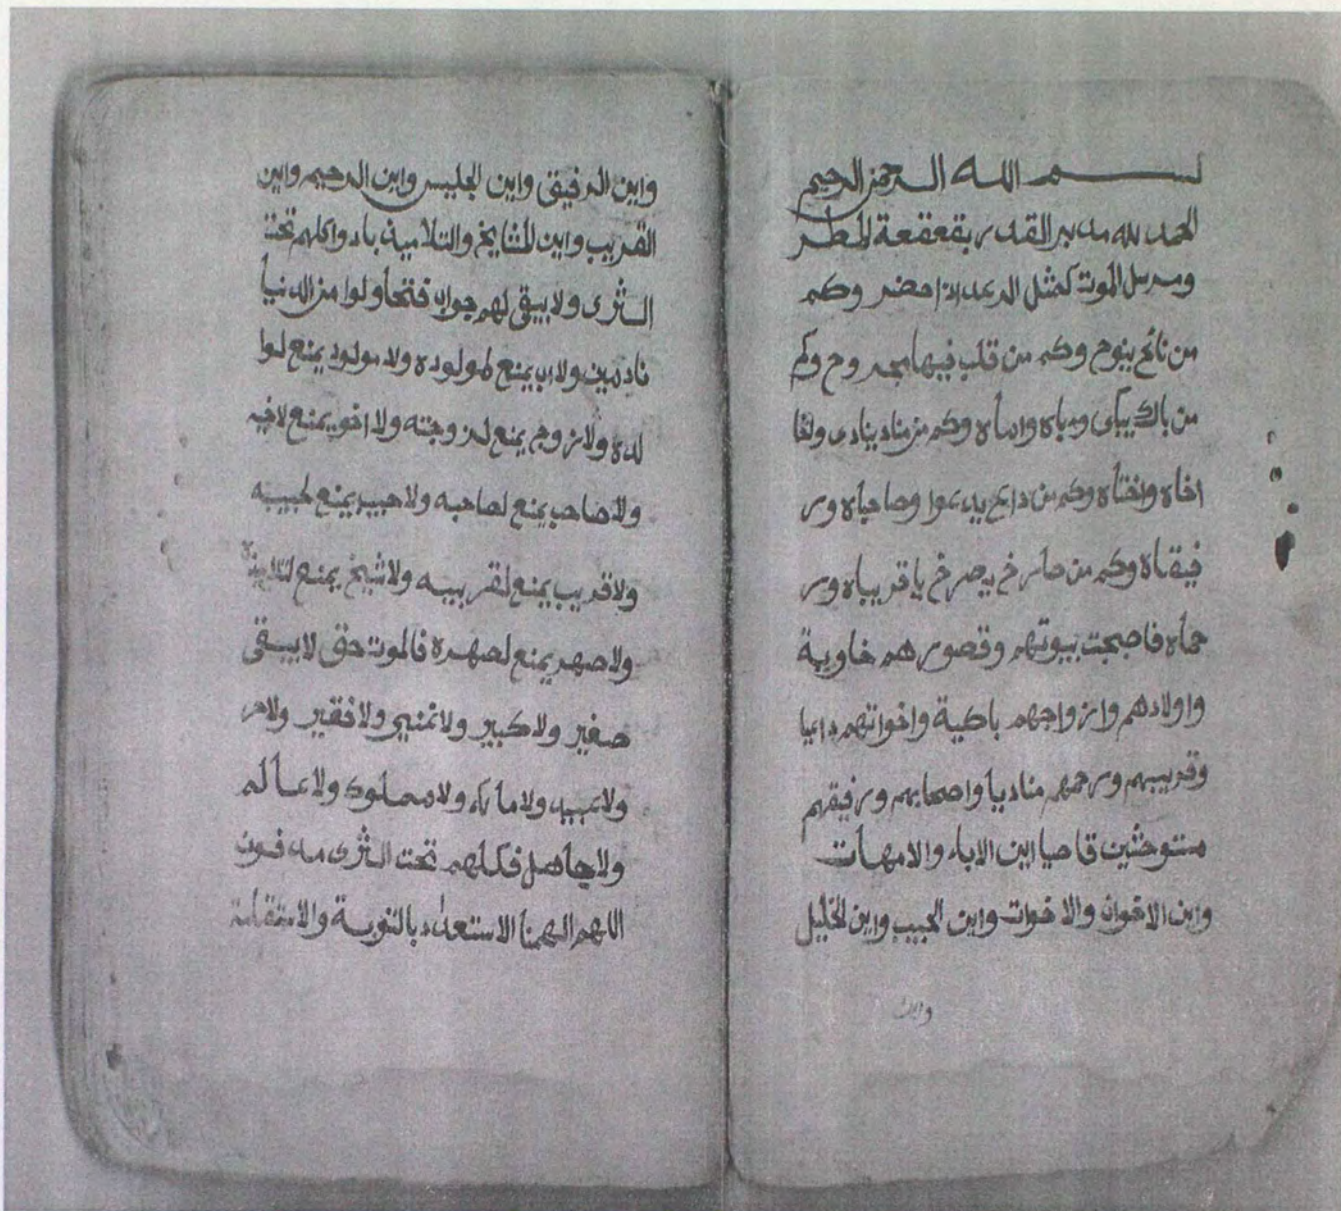 بسم الله الرحمن الرحيم
الحمد لله مدبر القدر بقعقعة المطر
ومرسل الموت كمثل الرعد اذا حضر وكم
من نائح ينوح وكم من قلب فيها مجروح وكم
من باك يبكى وءباه واماه وكم من مناد ينادى ولغا
اخاه واختاه وكم من داع يدعوا وصاحباه ور
فيقاه وكم من صارخ يصرخ يا قريباه ور
حماه فاصبحت بيوتهم وقصورهم خاوية
واولادهم وازواجهم باكية واخواتهم داعيا
وقريبهم ورحمهم مناديا واصحابهم ورفيقهم
متوحشين قاصيا اين الاباء والامهات
واين الاخوان والاخوات واين الحبيب واين الخليل
واين
واين الرفيق واين الجليس واين الرحيم واين
القريب واين المشايخ والتلاميذ بادوا كلهم تحت
الثرى ولا يبقى لهم جواب فتحاولوا من الدنيا
نادمين ولا اب يمنع لمولوده ولا مولود يمنع لوا
لده ولا زوج يمنع لزوجته ولا اخو يمنع لاخيه
ولا صاحب يمنع لصاحبه ولا حبيب يمنع لحبيبه
ولا قريب يمنع لقريبيه ولا شيخ يمنع لتلاميذه
ولا صهر يمنع لصهره فالموت حق لا يبقى
صغير ولا كبير ولا غني ولا فقير ولا حر
ولا عبيد ولا مالك ولا مملوك ولا عالم
ولا جاهل فكلهم تحت الثرى مدفون
اللهم الهمنا الاستعداد بالتوبة والاستقامة